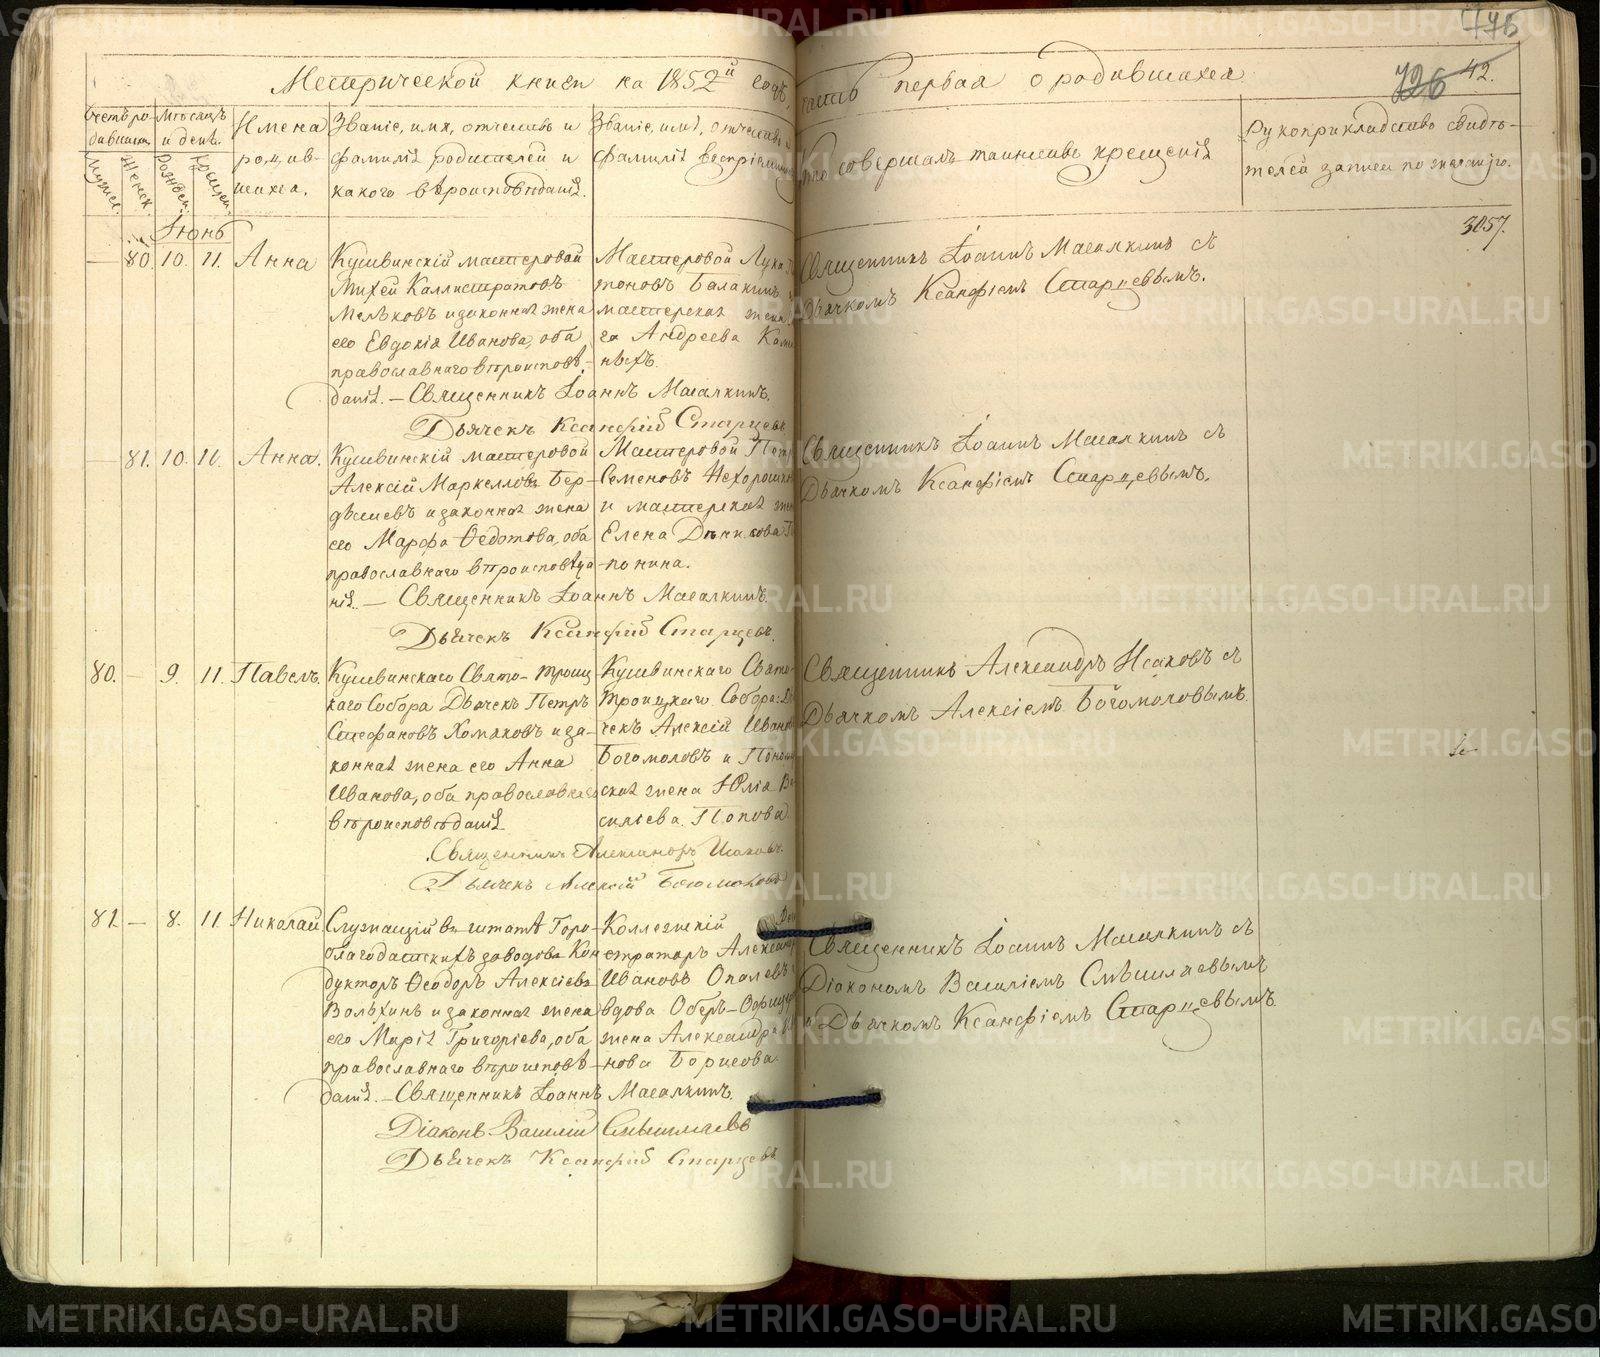 METRIKI.GASO-URAL.RU
Метрической книги на 1852й годъ, часть первая о родившихся
42.
726
Счетъ ро-
дивших.
Мужес.
Женск.
Мѣсяцъ
и день.
Рожден.
Крещен.
Имена
родив-
шихся.
Званіе, имя, отчество и
фамилія родителей и
какого вѣроисповѣданія.
Званіе, имя, отчество
фамилія воспріемник
Кто совершалъ таинство крещенія
Рукоприкладство свидѣ-
телей записи по желанію.
Іюнь
3057.
— 80. 10. 11. Анна
Кушвинскій мастеровой
Михей Каллистратовъ
Мельковъ и законная жена
его Евдокія Иванова, оба
православнаго вѣроисповѣ-
данія. — Священникъ Іоаннъ Масалкинъ.
Дьячекъ Ксанфій Старцевъ
Мастеровой Лука
тоновъ Балакинъ
мастерская жена
га Андреева
ныхъ.
Священникъ Іоаннъ Масалкинъ съ
Дьячкомъ Ксанфіемъ Старцевымъ.
— 81. 10. 11. Анна.
Кушвинскій мастеровой
Алексій Маркелловъ Бер-
дышевъ и законная жена
его Марфа Ѳедотова, оба
православнаго вѣроисповѣда-
нія. — Священникъ Іоаннъ Масалкинъ.
Дьячекъ Ксанфій Старцевъ.
Мастеровой Петр
Семеновъ Нехорошк
и мастерская жен
Елена Денисова
понина.
Священникъ Іоаннъ Масалкинъ съ
Дьячкомъ Ксанфіемъ Старцевымъ.
80. — 9. 11. Павелъ.
Кушвинскаго Свято-Троиц
каго Собора Дьячекъ Петръ
Стефановъ Хомяковъ и за-
конная жена его Анна
Иванова, оба православнаго
вѣроисповѣданія
Священникъ Александръ Исаковъ.
Дьячекъ Алексій Богомоловъ
Кушвинскаго Свято-
Троицкаго Собора: Дья
чекъ Алексій Иванов
Богомоловъ и Поно
ская жена Юлія Ва
сильева Попова
Священникъ Александръ Исаковъ съ
Дьячкомъ Алексіемъ Богомоловымъ.
81. — 8. 11. Николай
Служащій въ штатѣ Горо-
благодатскихъ заводовъ Кон
дукторъ Ѳеодоръ Алексіевъ
Вольхинъ и законная жена
его Марія Григоріева, оба
православнаго вѣроисповѣ-
данія. — Священникъ Іоаннъ Масалкинъ.
Діаконъ Василій Смышляевъ
Дьячекъ Ксанфій Старцевъ
Коллежскій
страторъ Александр
Ивановъ Ополевъ
вдова Оберъ-Офицер
жена Александра
нова Борисова.
Священникъ Іоаннъ Масалкинъ съ
Діакономъ Василіемъ Смышляевымъ
и Дьячкомъ Ксанфіемъ Старцевымъ